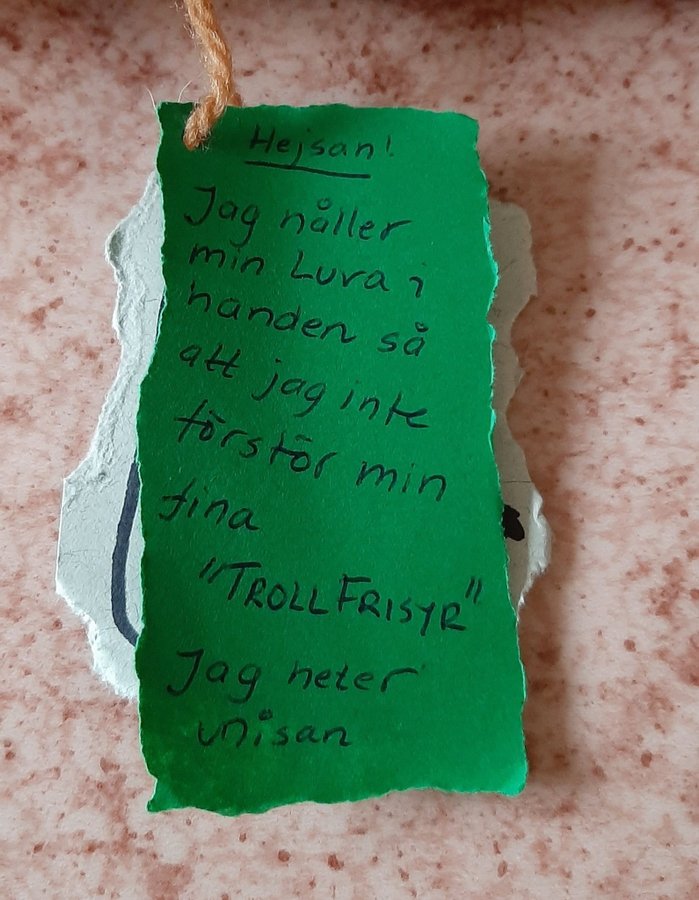 Hejsan!
Jag håller
min Luva i
handen så
att jag inte
förstör min
fina
"TROLLFRISYR"
Jag heter
unisan